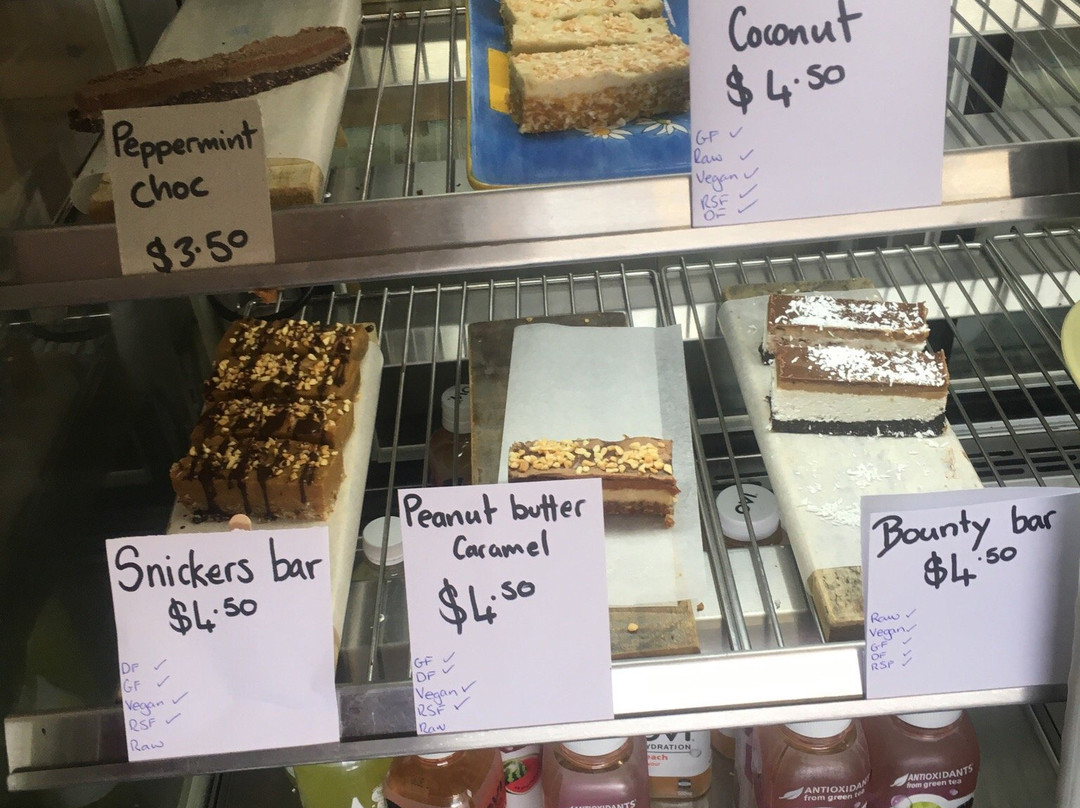 Coconut
$4.50
GF ✓
Raw ✓
Vegan ✓
RSF ✓
DF ✓
Peppermint
choc
$3.50
Snickers bar
$4.50
DF ✓
GF ✓
Vegan ✓
RSF ✓
Raw
Peanut butter
Caramel
$4.50
GF ✓
DF ✓
Vegan ✓
RSF ✓
Raw
Bounty bar
$4.50
Raw ✓
Vegan ✓
GF ✓
DF ✓
RSF ✓
YDRATION
each
ANTIOXIDANTS
from green tea
ANTIOXIDANTS
from green tea
ANTIOXIDANTS